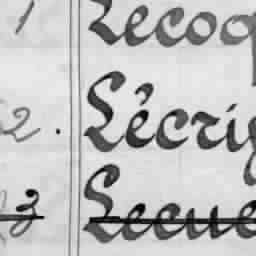 1 Lecoq
2. Lécrig
3 Lecue